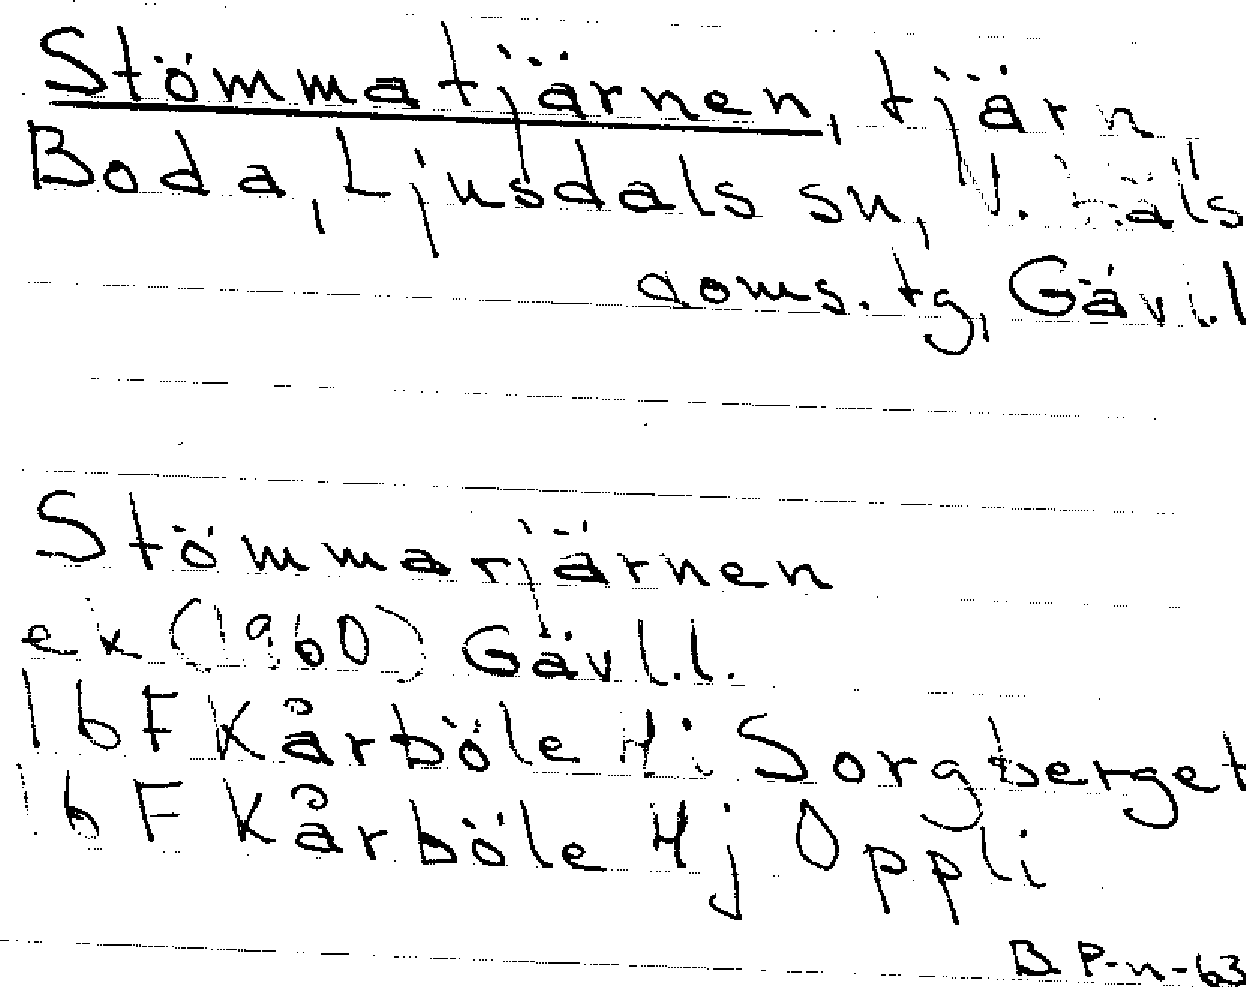 Stömmatjärnen, tjärn
Boda, Ljusdals sn, V. Häls
doms. tg, Gävl.l
Stömmatjärnen
ek (1960) Gävl.l.
16F Kårböle 4i Sorgberget
16F Kårböle 4j Oppli
B. P-n-63